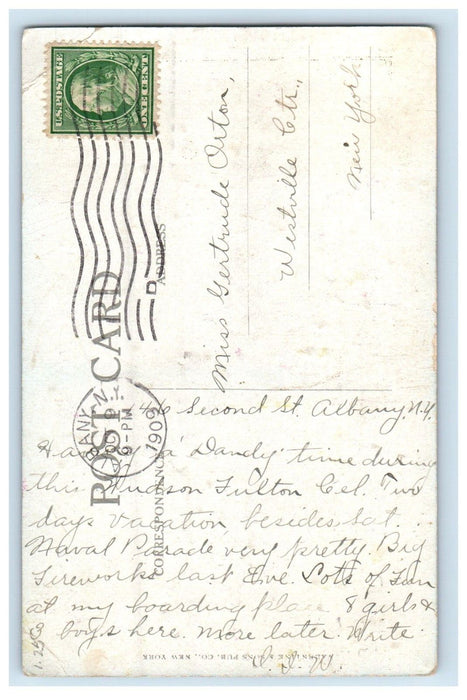 U.S. POSTAGE
ONE CENT
POST CARD
ADDRESS
CORRESPONDENCE
ALBANY N.Y.
9
6-PM
1909
D
Miss Gertrude Orton,
Westville Ctr.,
New York.
46 Second St. Albany, N.Y.
a 'Dandy' time during
this Hudson Fulton Cel. Two
days vacation besides Sat.
Naval Parade very pretty. Big
Fireworks last Eve. Lots of Fun
at my boarding place 8 girls &
3 boys here. more later. Write
1.25
& SONS PUB. CO., NEW YORK